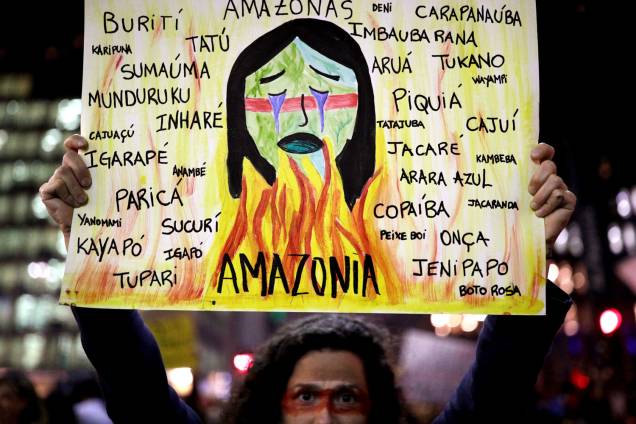 BURITÍ
AMAZONAS
DENI
CARAPANAÚBA
KARIPUNA
TATÚ
IMBAUBARANA
SUMAÚMA
ARUÁ
TUKANO
WAYAMPI
MUNDURUKU
PIQUIÁ
INHARÉ
TATAJUBA
CAJUÍ
CAJUAÇÚ
IGARAPÉ
JACARÉ
KAMBEBA
ANAMBÉ
ARARA AZUL
PARICÁ
COPAÍBA
JACARANDA
YANOMAMI
SUCURÍ
PEIXE BOÍ
ONÇA
KAYAPÓ
IGAPÓ
AMAZONIA
JENIPAPO
TUPARI
BOTO ROSA